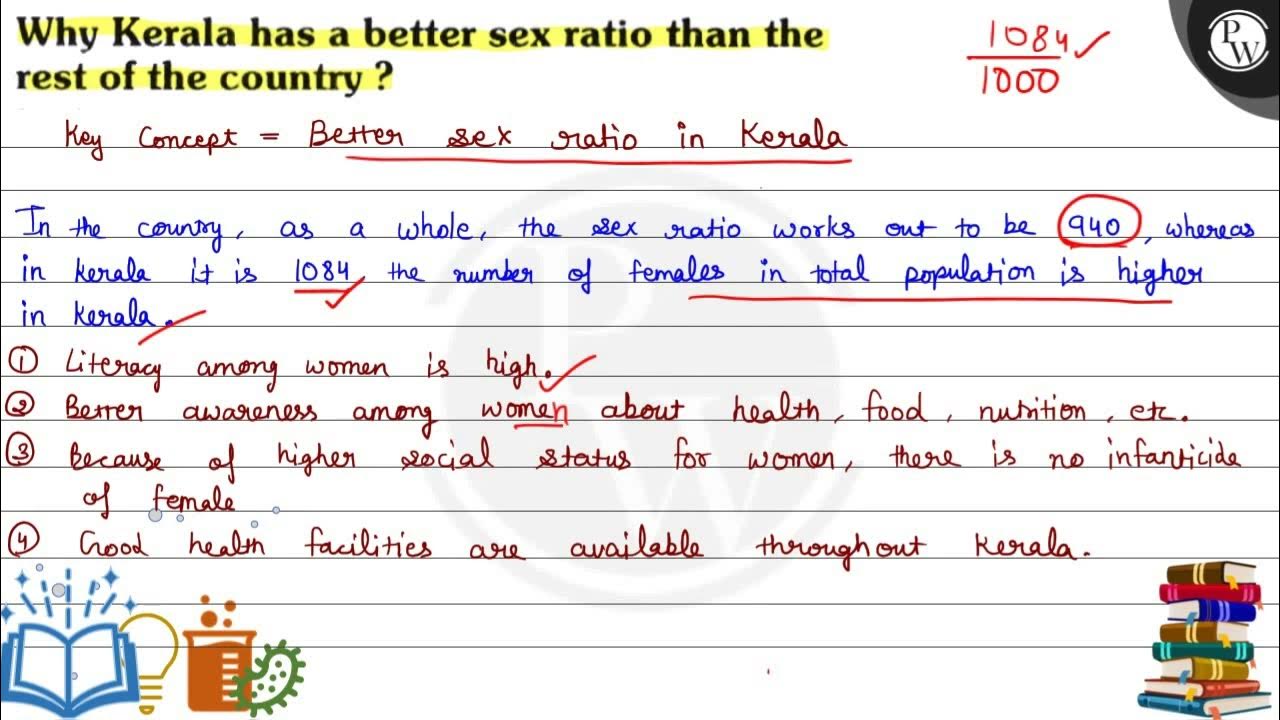 Why Kerala has a better sex ratio than the
rest of the country ?
1084
1000
PW
Key Concept = Better sex ratio in Kerala
In the country, as a whole, the sex ratio works out to be 940, whereas
in kerala it is 1084 the number of females in total population is higher
in kerala.
① Literacy among women is high.
② Better awareness among women about health, food, nutrition, etc.
③ Because of higher social status for women, there is no infanticide
of female
④ Good health facilities are available throughout Kerala.